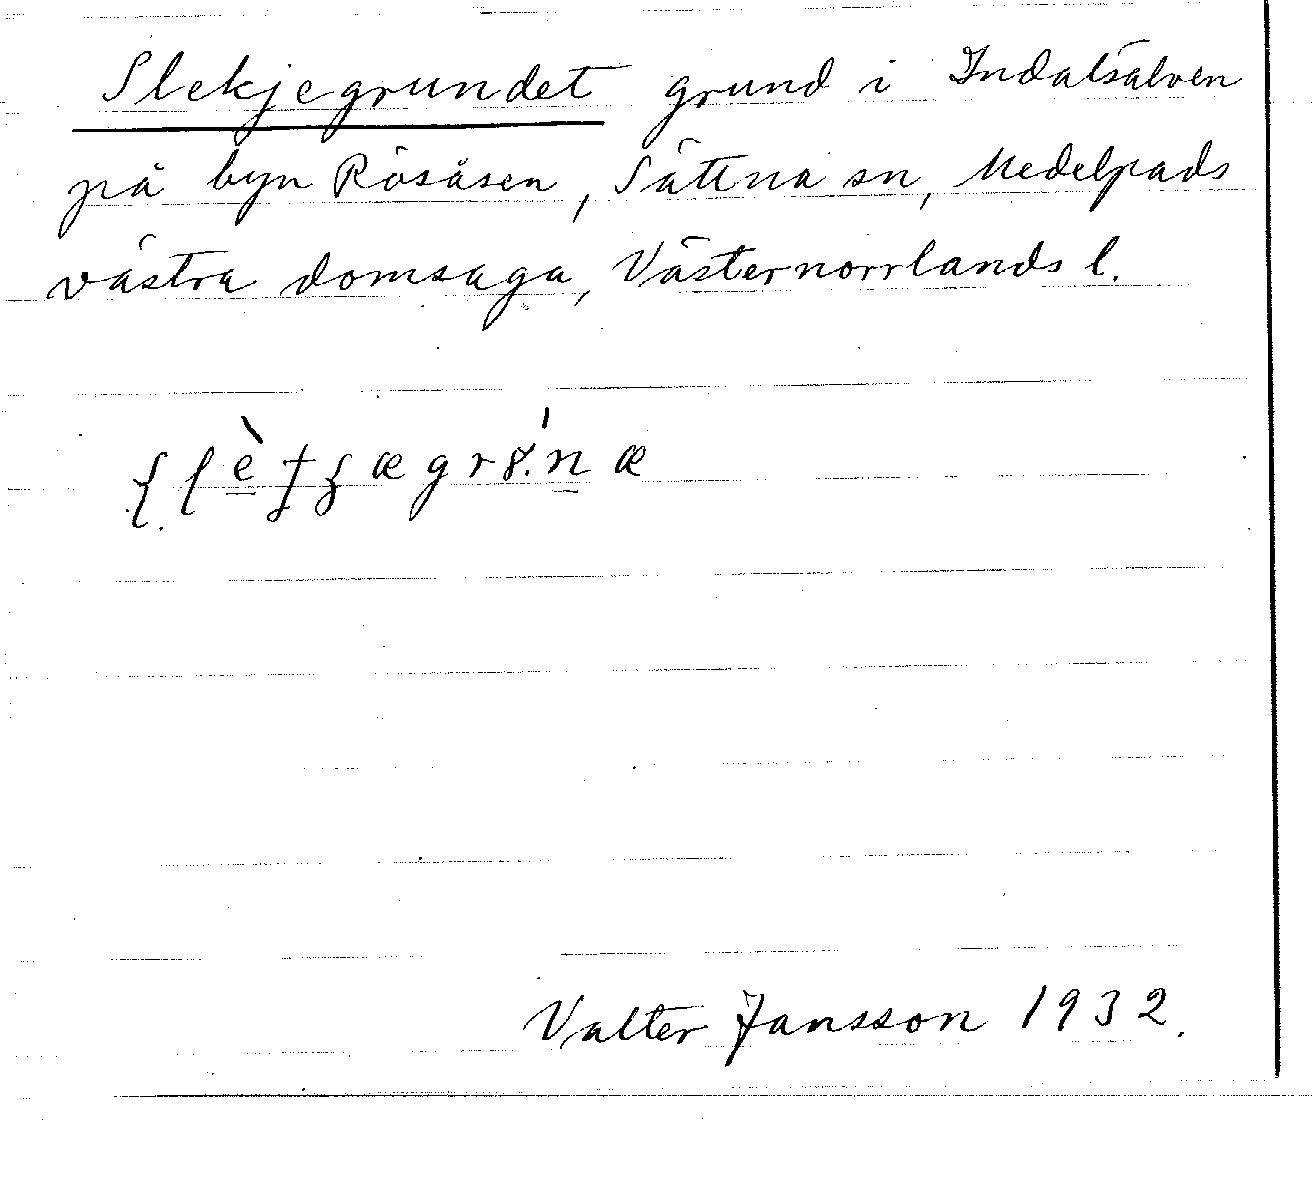 Slekjegrundet grund i Indalsälven
på byn Rösåsen, Sättna sn, Medelpads
västra domsaga, Västernorrlands l.
Valter Jansson 1932.